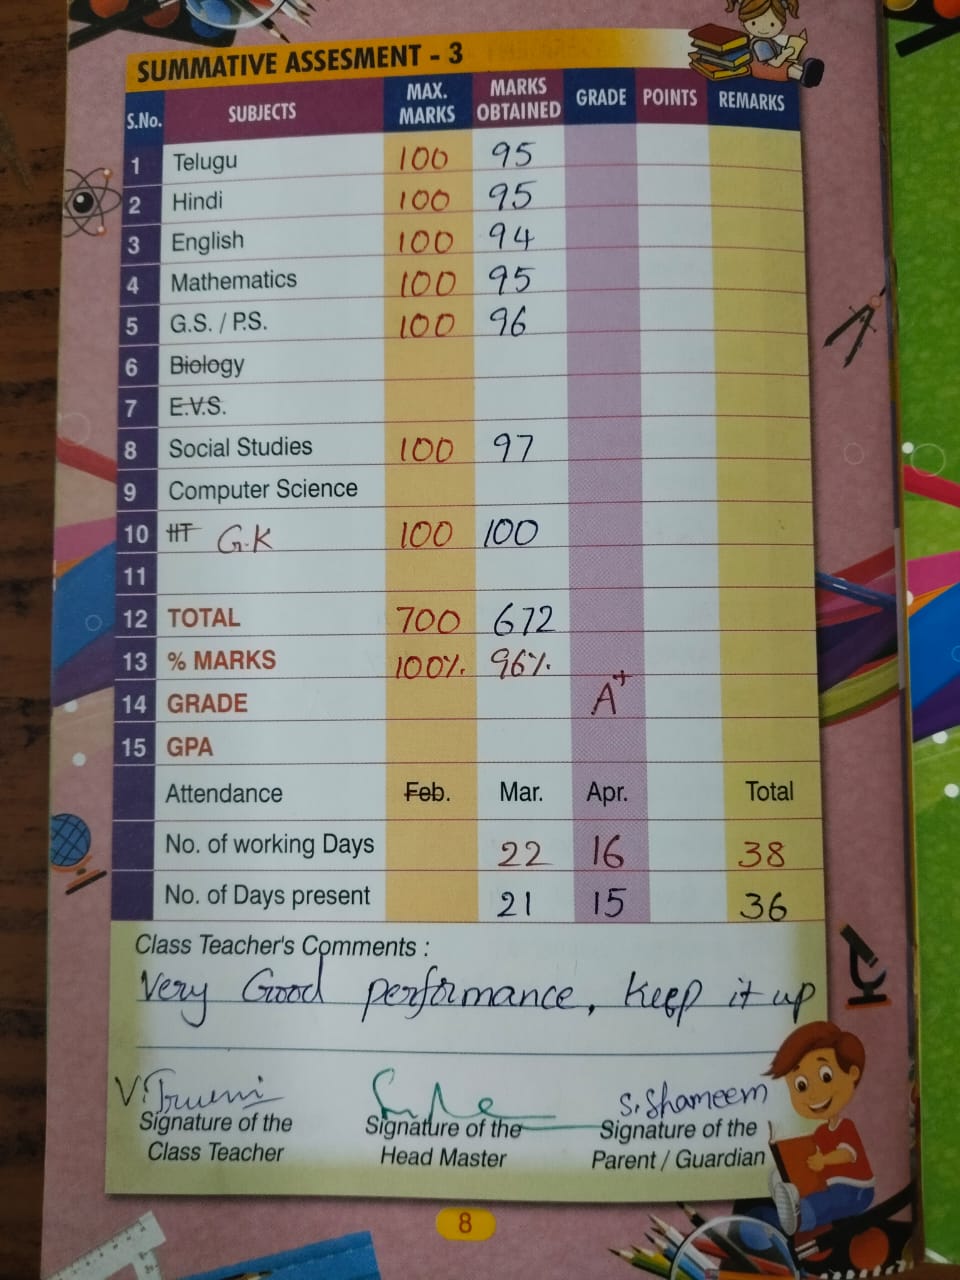 SUMMATIVE ASSESMENT - 3
S.No. SUBJECTS MAX. MARKS MARKS OBTAINED GRADE POINTS REMARKS
1 Telugu 100 95
2 Hindi 100 95
3 English 100 94
4 Mathematics 100 95
5 G.S. / P.S. 100 96
6 Biology
7 E.V.S.
8 Social Studies 100 97
9 Computer Science
10 IIT G.K 100 100
11
12 TOTAL 700 672
13 % MARKS 100% 96%
14 GRADE A+
15 GPA
Attendance Feb. Mar. Apr. Total
No. of working Days 22 16 38
No. of Days present 21 15 36
Class Teacher's Comments :
Very Good performance, keep it up
S. Shameem
Signature of the Class Teacher
Signature of the Head Master
Signature of the Parent / Guardian
8